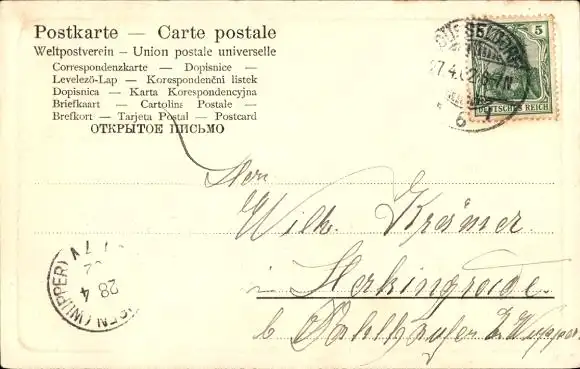 Postkarte — Carte postale
Weltpostverein – Union postale universelle
Correspondenzkarte — Dopisnice —
Levelező-Lap — Korespondenční listek
Dopisnica — Karta Korespondencyjna
Briefkaart — Cartolina Postale —
Brefkort — Tarjeta Postal — Postcard
ОТКРЫТОЕ ПИСЬМО
5
DEUTSCHES REICH
Herr
Wilh. Krämer.
in Herkingrade
b. Dahlhausen Wupper
28 4
(WUPPER)